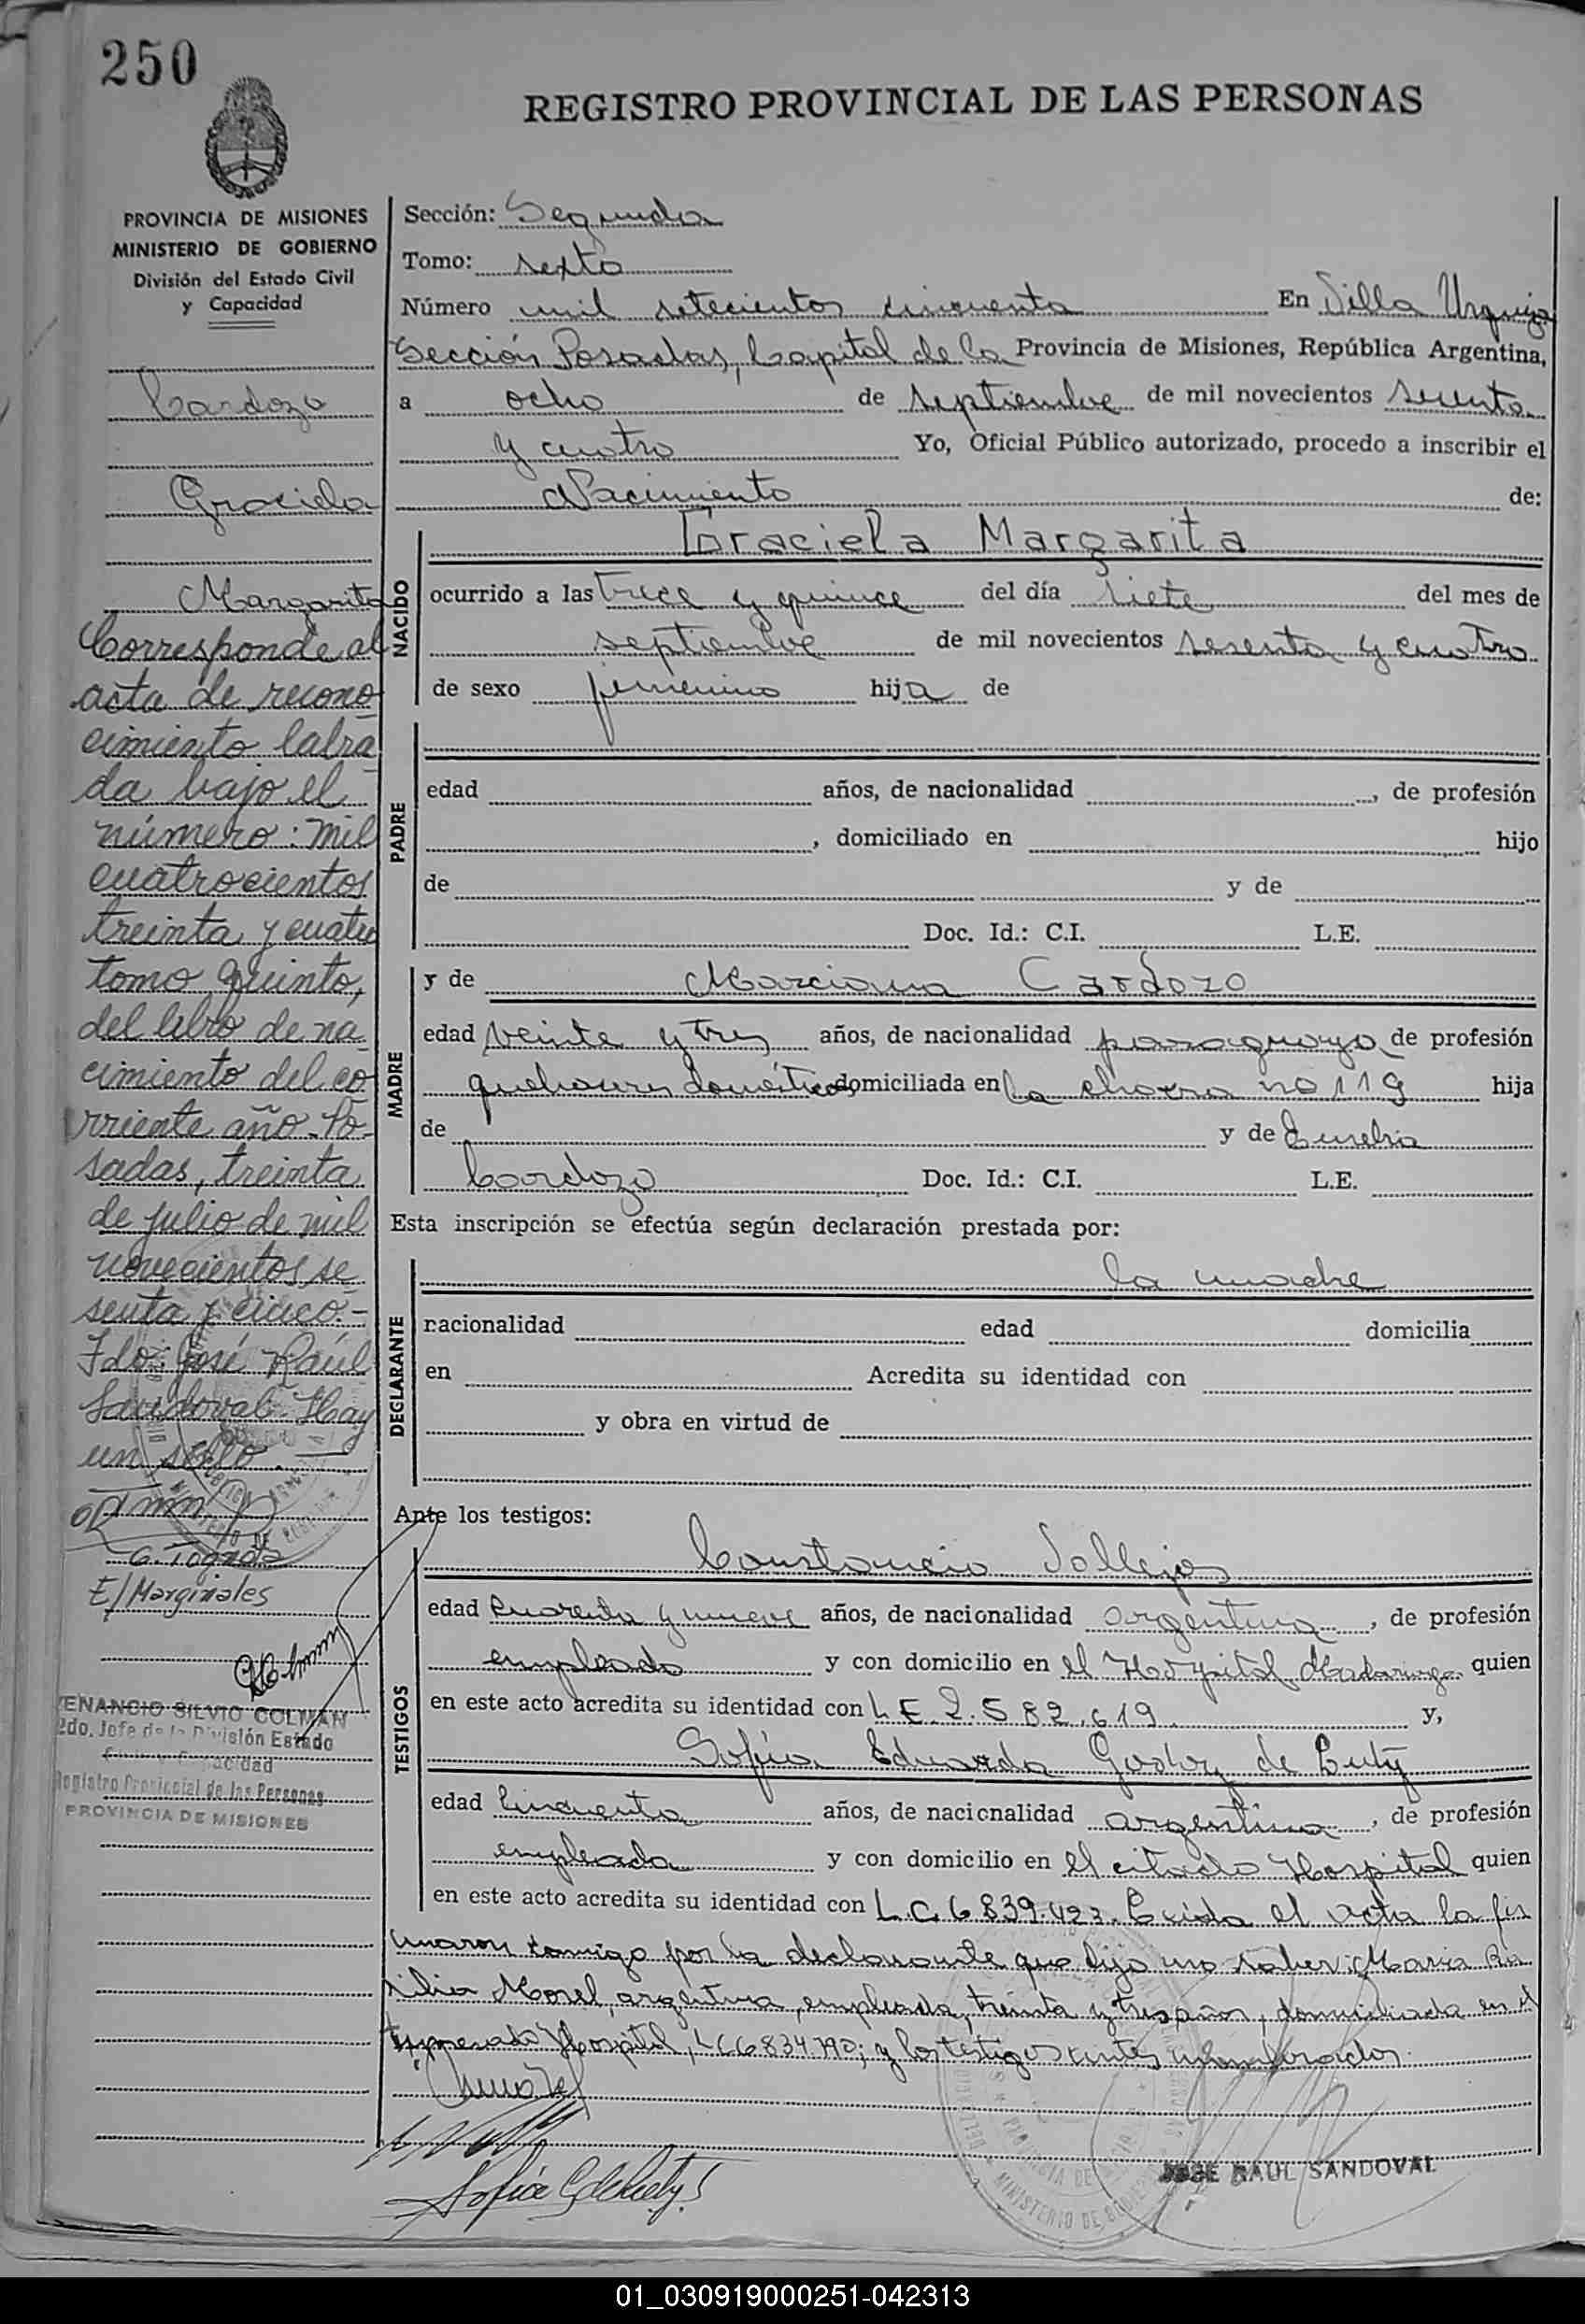 250
REGISTRO PROVINCIAL DE LAS PERSONAS
PROVINCIA DE MISIONES
MINISTERIO DE GOBIERNO
División del Estado Civil
y Capacidad
Cardozo
Graciela
Margarita
Corresponde al
acta de recono
cimiento labra
da bajo el
número: mil
cuatrocientos
treinta y cuatro
tomo quinto,
del libro de na
cimiento del co
rriente año. Po-
sadas, treinta
de julio de mil
novecientos se
senta y cinco.-
Fdo: José Raúl
Sandoval. Hay
un sello.
G. Tognola
E/Marginales
VENANCIO SILVIO COLMAN
2do. Jefe de la División Estado
Civil y Capacidad
Registro Provincial de las Personas
PROVINCIA DE MISIONES
Sección: Segunda
Tomo: sexto
Número mil setecientos cincuenta En Villa Urquiza
Sección Posadas, Capital de la Provincia de Misiones, República Argentina,
a ocho de septiembre de mil novecientos sesenta
y cuatro Yo, Oficial Público autorizado, procedo a inscribir el
Nacimiento de:
NACIDO
Graciela Margarita
ocurrido a las trece y quince del día siete del mes de
septiembre de mil novecientos sesenta y cuatro
de sexo femenino hija de
PADRE
edad años, de nacionalidad , de profesión
, domiciliado en hijo
de y de
Doc. Id.: C.I. L.E.
MADRE
y de Marciana Cardozo
edad veinte y tres años, de nacionalidad paraguaya de profesión
quehaceres domésticos domiciliada en la chacra no 119 hija
de y de Eusebia
Cardozo Doc. Id.: C.I. L.E.
Esta inscripción se efectúa según declaración prestada por:
DECLARANTE
la madre
nacionalidad edad domicilia
en Acredita su identidad con
y obra en virtud de
Ante los testigos:
TESTIGOS
Constancio Vallejos
edad cuarenta y nueve años, de nacionalidad argentina, de profesión
empleado y con domicilio en el Hospital Madariaga quien
en este acto acredita su identidad con L E 2.582.619 y,
Sofia Eduarda Godoy de
edad cincuenta años, de nacionalidad argentina, de profesión
empleada y con domicilio en el citado Hospital quien
en este acto acredita su identidad con L.C. 6.839.423. Leída el acta la fir
maron conmigo por la declarante que dijo no saber: Maria
Morel, argentina, empleada, treinta y tres años, domiciliada en el
Hospital, LC 6834.790; y los testigos antes
JOSE RAUL SANDOVAL
01_030919000251-042313